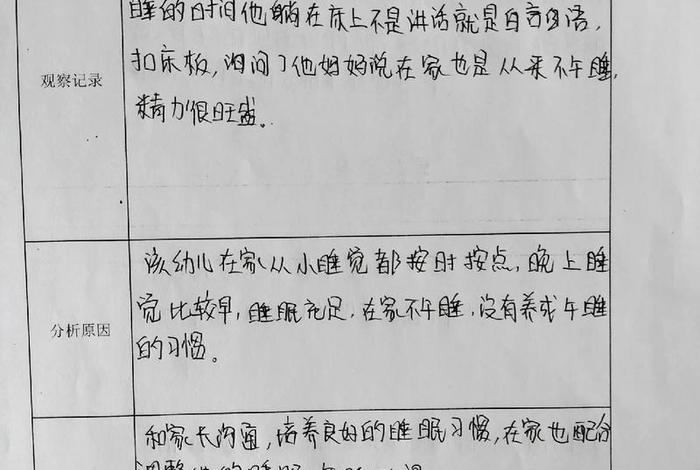 睡的时间他躺在床上不是讲话就是自言自语,
扣床板,询问了他妈妈说在家也是从来不午睡,
观察记录
精力很旺盛。
该幼儿在家从小睡觉都按时按点,晚上睡
觉比较早,睡眠充足,在家不午睡,没有养成午睡
分析原因
的习惯。
和家长沟通,培养良好的睡眠习惯,在家也配合
调整